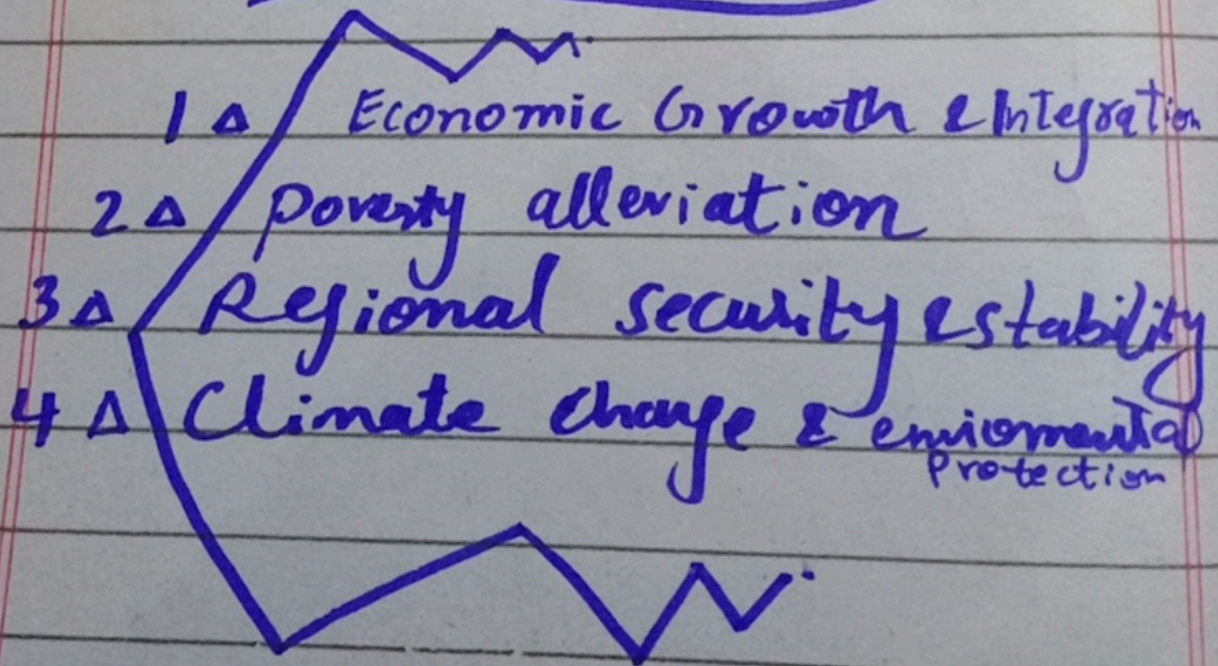 1 Δ Economic Growth & Integration
2 Δ Poverty alleviation
3 Δ Regional security & stability
4 Δ Climate change & enviromental
Protection